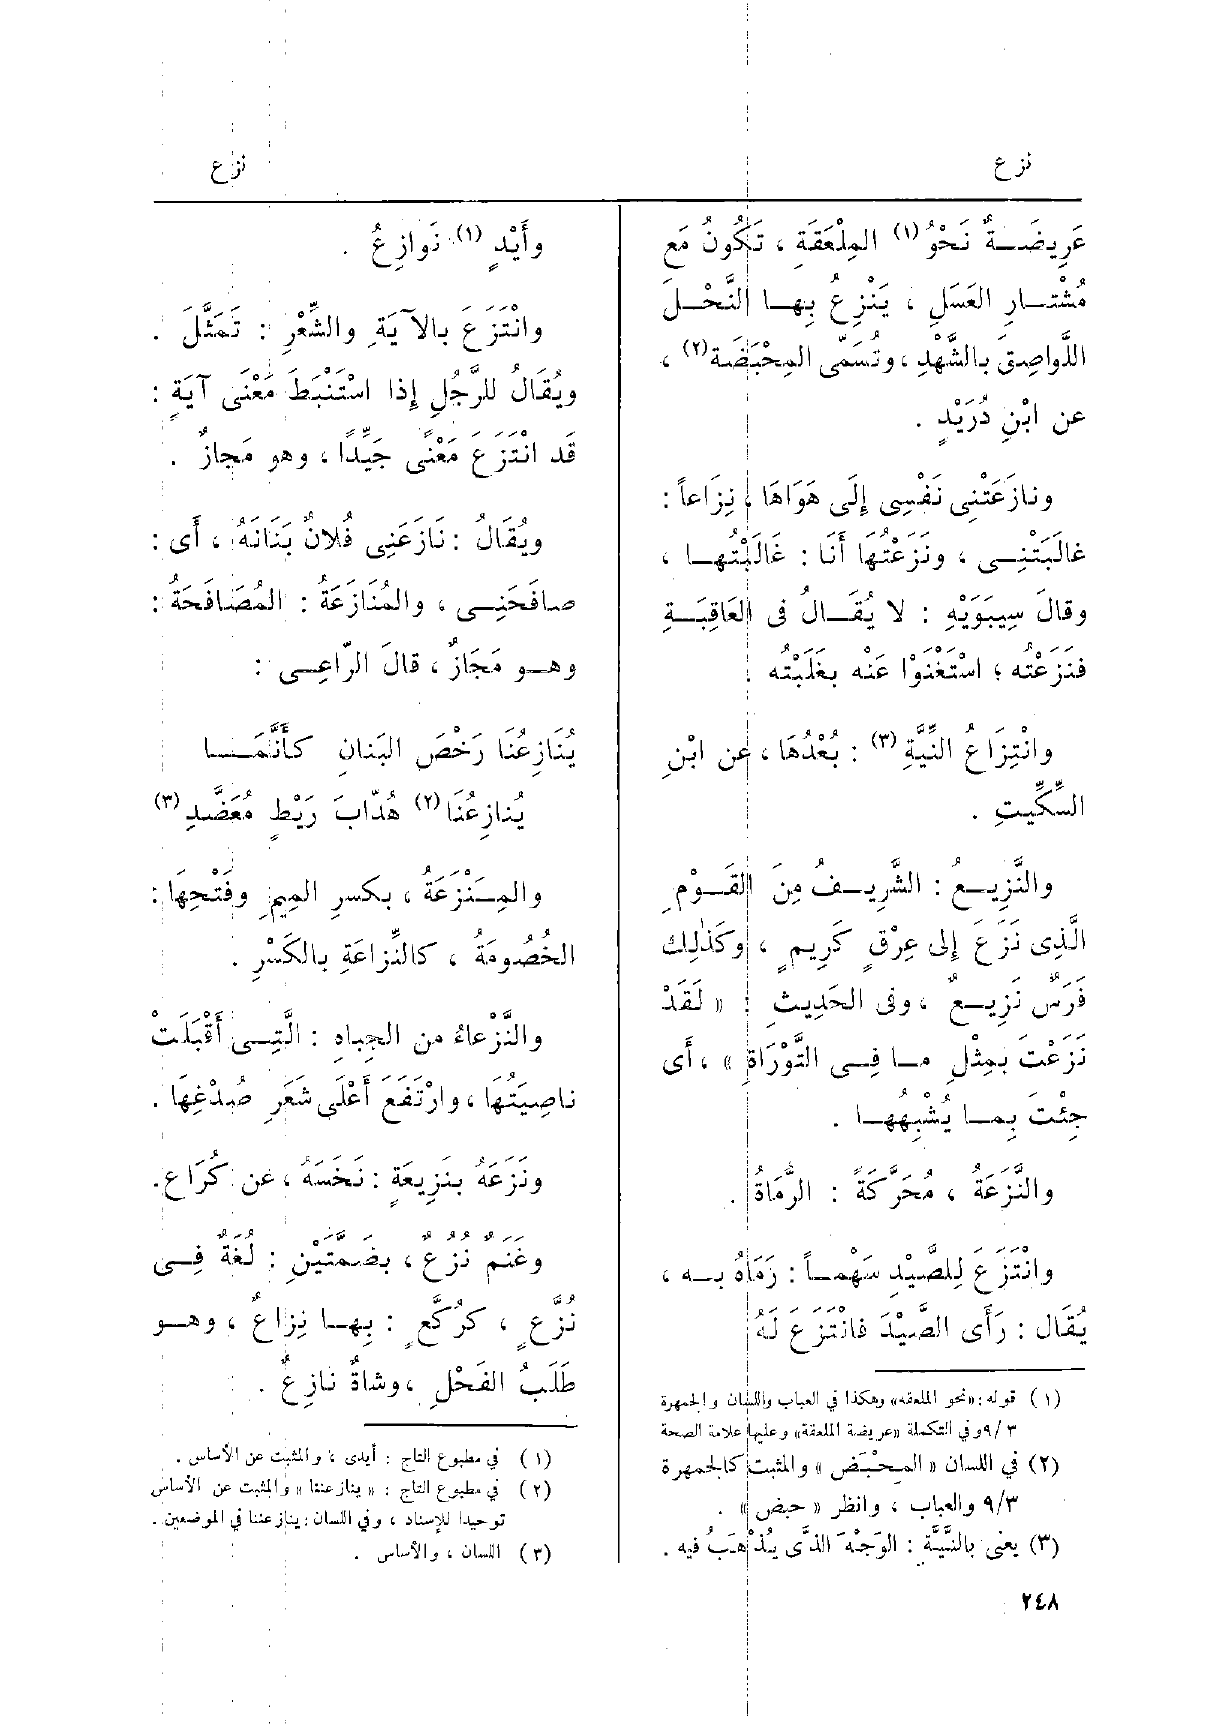 نزع
نزع
عَرِيضَـةٌ نَحْوُ (١) المِلْعَقَةِ ، تَكُونُ مَع
مُشْتـارِ العَسَلِ ، يَنْزِعُ بِهـا النَّحْـلَ
اللَّوَاصِقَ بالشَّهْدِ ، وتُسَمَّى المِحْبَضَة (٢) ،
عن ابْنِ دُرَيْدٍ .
ونازَعَتْنِى نَفْسِى إِلَى هَوَاهَا نِزَاعاً :
غالَبَتْنِـى ، ونَزَعْتُهَا أَنَا : غَالَبْتُهـا ،
وقالَ سِيبَوَيْهِ : لا يُقَـالُ فى العَاقِبَـةِ
فنَزَعْتُه ؛ اسْتَغْنَوْا عَنْه بغَلَبْتُه .
وانْتِزَاعُ النِّيَّةِ (٣) : بُعْدُهَا ، عن ابْنِ
السِّكِّيتِ .
والنَّزِيـعُ : الشَّرِيـفُ مِنَ القَـوْمِ
الَّذِى نَزَعَ إلى عِرْقٍ كَرِيمٍ ، وكَذٰلِكَ
فَرَسٌ نَزِيـعٌ ، وفى الحَدِيثِ : « لَقَدْ
نَزَعْتَ بمِثْلِ مـا فِـى التَّوْرَاةِ » ، أَى
جِئْتَ بِمـا يُشْبِهُهـا .
والنَّزَعَةُ ، مُحَرَّكَةً : الرُّمَاةُ .
وانْتَزَعَ لِلصَّيْدِ سَهْمـاً : رَمَاهُ بـه ،
يُقَال : رَأَى الصَّيْدَ فانْتَزَعَ لَهُ
(١) قوله : «نحو الملعقه» وهكذا في العباب واللسان والجمهرة
٣ /٩ وفي التكملة «عريضة الملعقة» وعليها علامة الصحة
(٢) في اللسان « المِحْبَض » والمثبت كالجمهرة
٩/٣ والعباب ، وانظر « حبض » .
(٣) يعنى بالنِّيَّة : الوَجْهَ الذى يُذْهَبُ فيه .
٢٤٨
وأَيْدٍ (١) نَوازِعُ .
وانْتَزَعَ بالآيَةِ والشِّعْرِ : تَمَثَّلَ .
ويُقَالُ للرَّجُلِ إذا اسْتَنْبَطَ مَعْنَى آيَةٍ :
قَد انْتَزَعَ مَعْنًى جَيِّدًا ، وهو مَجازٌ .
ويُقَالُ : نَازَعَنِى فُلانٌ بَنَانَهُ ، أَى :
صافَحَنِـى ، والمُنَازَعَةُ : المُصَافَحَةُ :
وهـو مَجَازٌ ، قالَ الرّاعِـى :
يُنَازِعُنَا رَخْصَ البَنانِ كـأَنَّمَـا
يُنازِعُنَا (٢) هُدّابَ رَيْطٍ مُعَضَّدِ (٣)
والمِـنْزَعَةُ ، بكسرِ المِيمِ وفَتْحِهَا :
الخُصُومَةُ ، كالنِّزاعَةِ بالكَسْرِ .
والنَّزْعاءُ من الجِباهِ : الَّتِـى أَقْبَلَتْ
ناصِيَتُهَا ، وارْتَفَعَ أَعْلَى شَعَرِ صُدْغِهَا .
ونَزَعَهُ بنَزِيعَةٍ : نَخَسَهُ ، عن كُرَاعٍ.
وغَنَمٌ نُزُعٌ ، بضَمَّتَيْنِ : لُغَةٌ فِـى
نُزَّعٍ ، كرُكَّعٍ : بِهـا نِزاعٌ ، وهـو
طَلَبُ الفَحْلِ ، وشاةٌ نازِعٌ .
(١) في مطبوع التاج : أيدى ، والمثبت عن الأساس .
(٢) في مطبوع التاج : « ينازعننا » والمثبت عن الأساس
توحيدا للإسناد ، وفي اللسان : ينازعننا في الموضعين .
(٣) اللسان ، والأساس .